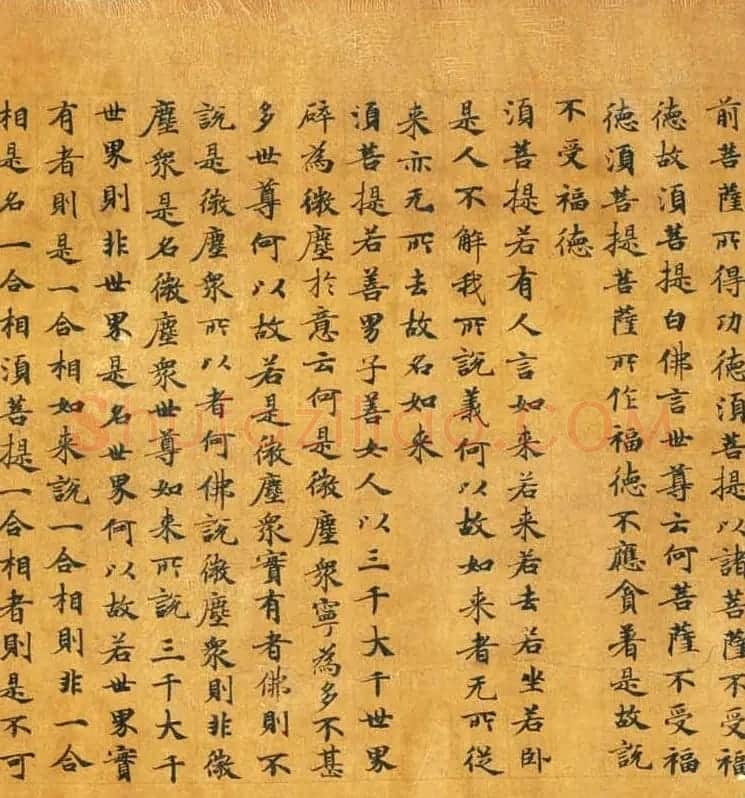 前菩薩所得功德須菩提以諸菩薩不受福
德故須菩提白佛言世尊云何菩薩不受福
德須菩提菩薩所作福德不應貪著是故說
不受福德
須菩提若有人言如来若来若去若坐若卧
是人不解我所說義何以故如来者无所從
来亦无所去故名如来
須菩提若善男子善女人以三千大千世界
碎為微塵於意云何是微塵衆寧為多不甚
多世尊何以故若是微塵衆實有者佛則不
說是微塵衆所以者何佛說微塵衆則非微
塵衆是名微塵衆世尊如来所說三千大千
世界則非世界是名世界何以故若世界實
有者則是一合相如来說一合相則非一合
相是名一合相須菩提一合相者則是不可